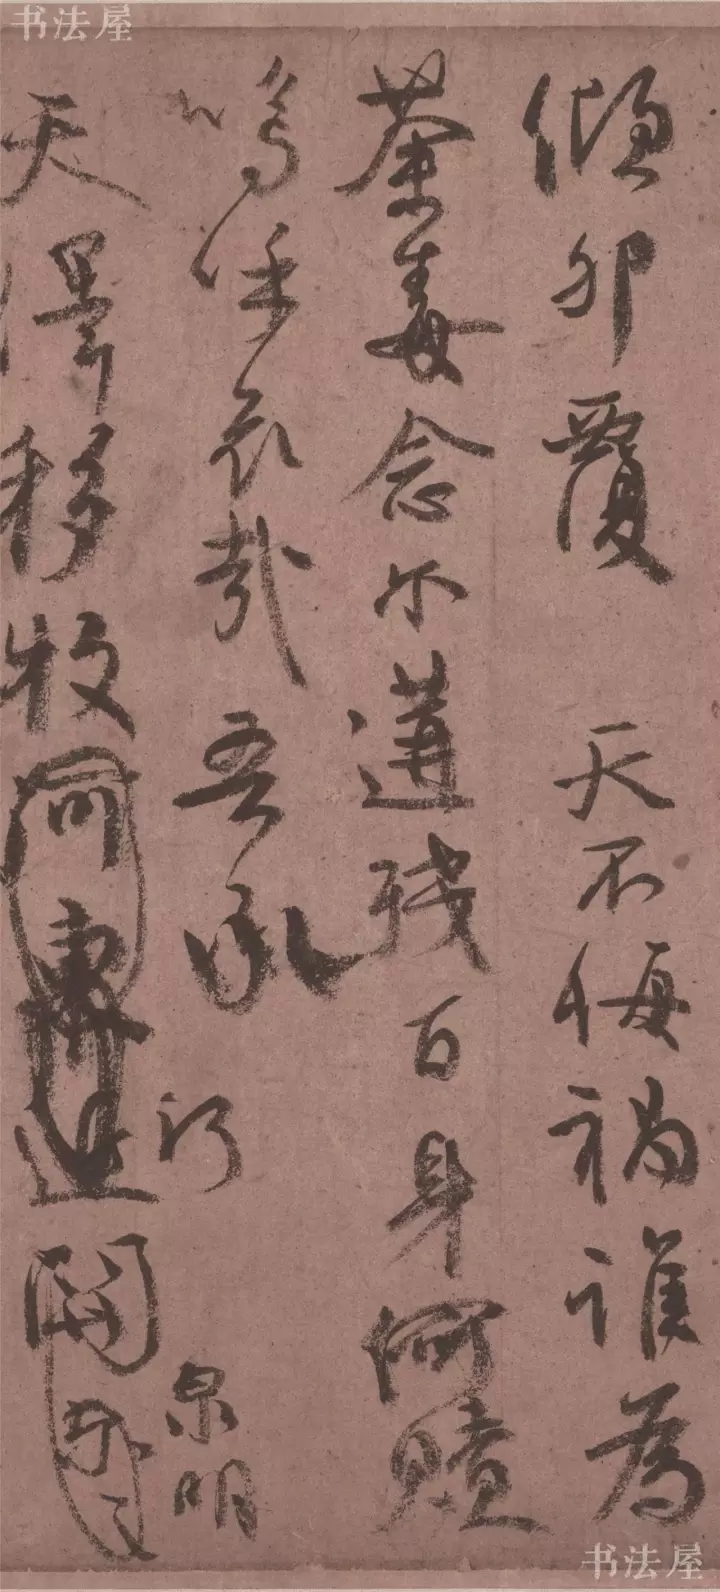 書法屋
傾卵覆天不悔禍誰為
荼毒念爾遘殘百身何贖
嗚呼哀哉吾承
天澤移牧河關
泉明
书法屋